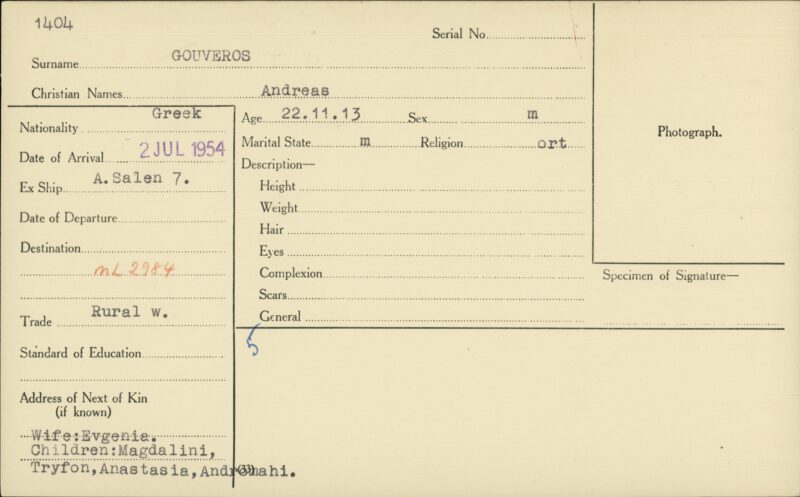 1404
Serial No.
Surname GOUVEROS
Christian Names Andreas
Nationality Greek
Date of Arrival 2 JUL 1954
Ex Ship A.Salen 7.
Date of Departure
Destination
nL 2984
Trade Rural w.
Standard of Education
Address of Next of Kin
(if known)
Wife:Evgenia.
Children:Magdalini,
Tryfon,Anastasia,Andromahi.
Age 22.11.13 Sex m
Marital State m Religion ort
Description—
Height
Weight
Hair
Eyes
Complexion
Scars
General
5
Photograph.
Specimen of Signature—